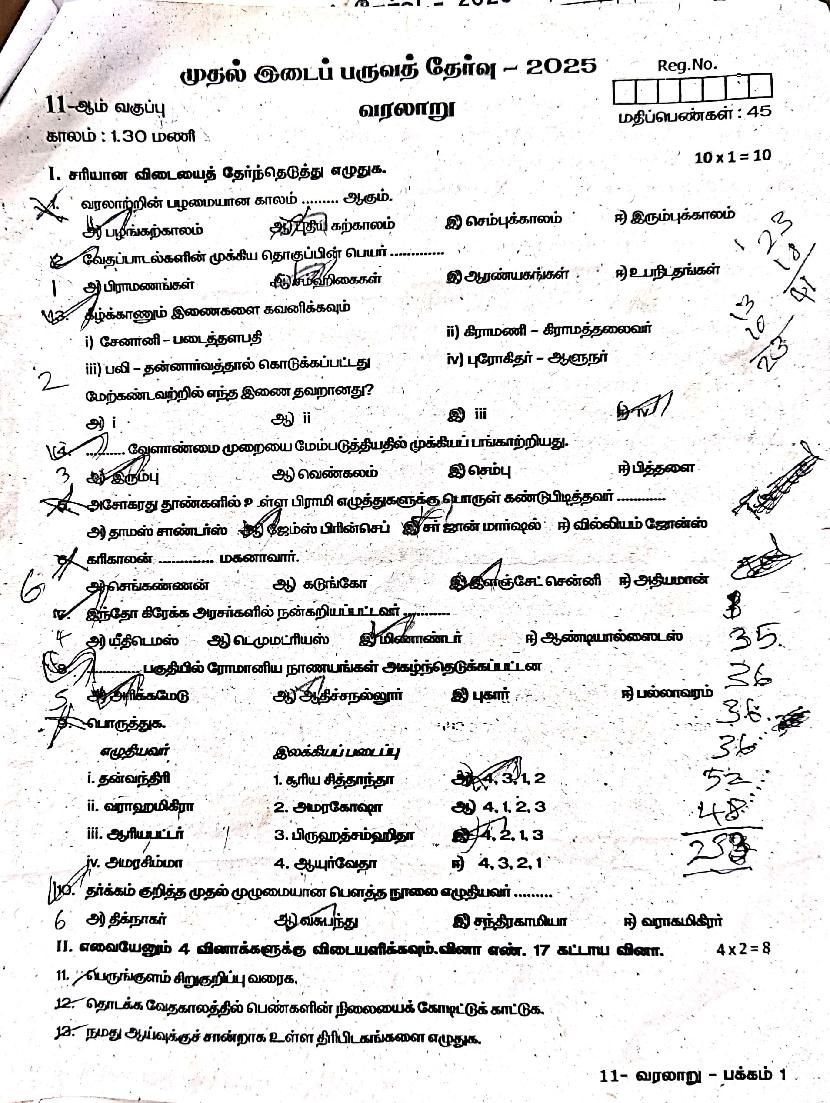 முதல் இடைப் பருவத் தேர்வு – 2025
Reg.No.
11-ஆம் வகுப்பு
வரலாறு
மதிப்பெண்கள் : 45
காலம் : 1.30 மணி
I. சரியான விடையைத் தேர்ந்தெடுத்து எழுதுக.
10 x 1 = 10
1. வரலாற்றின் பழமையான காலம் ......... ஆகும்.
அ) பழங்கற்காலம் ஆ) புதிய கற்காலம் இ) செம்புக்காலம் ஈ) இரும்புக்காலம்
2. வேதப்பாடல்களின் முக்கிய தொகுப்பின் பெயர் .............
1 அ) பிராமணங்கள் ஆ) சம்ஹிதைகள் இ) ஆரண்யகங்கள் ஈ) உபநிடதங்கள்
3. கீழ்க்காணும் இணைகளை கவனிக்கவும்
i) சேனானி – படைத்தளபதி ii) கிராமணி – கிராமத்தலைவர்
iii) பலி – தன்னார்வத்தால் கொடுக்கப்பட்டது iv) புரோகிதர் – ஆளுநர்
2 மேற்கண்டவற்றில் எந்த இணை தவறானது?
அ) i ஆ) ii இ) iii ஈ) iv
4. .......... வேளாண்மை முறையை மேம்படுத்தியதில் முக்கியப் பங்காற்றியது.
3 அ) இரும்பு ஆ) வெண்கலம் இ) செம்பு ஈ) பித்தளை
5. அசோகரது தூண்களில் உள்ள பிராமி எழுத்துகளுக்கு பொருள் கண்டுபிடித்தவர் ............
அ) தாமஸ் சாண்டர்ஸ் ஆ) ஜேம்ஸ் பிரின்செப் இ) சர் ஜான் மார்ஷல் ஈ) வில்லியம் ஜோன்ஸ்
6. கரிகாலன் .............. மகனாவார்.
அ) செங்கண்ணன் ஆ) கடுங்கோ இ) இளஞ்சேட் சென்னி ஈ) அதியமான்
7. இந்தோ கிரேக்க அரசர்களில் நன்கறியப்பட்டவர் ............
4 அ) யீதிடெமஸ் ஆ) டெமுமட்ரியஸ் இ) மினாண்டர் ஈ) ஆண்டியால்ஸைடஸ்
8. ............ பகுதியில் ரோமானிய நாணயங்கள் அகழ்ந்தெடுக்கப்பட்டன
5 அ) அரிக்கமேடு ஆ) ஆதிச்சநல்லூர் இ) புகார் ஈ) பல்லாவரம்
9. பொருத்துக.
எழுதியவர் இலக்கியப் படைப்பு
i. தன்வந்திரி 1. சூரிய சித்தாந்தா அ) 4, 3, 1, 2
ii. வராஹமிகிரா 2. அமரகோஷா ஆ) 4, 1, 2, 3
iii. ஆரியபட்டர் 3. பிருஹத்சம்ஹிதா இ) 4, 2, 1, 3
iv. அமரசிம்மா 4. ஆயுர்வேதா ஈ) 4, 3, 2, 1
10. தர்க்கம் குறித்த முதல் முழுமையான பௌத்த நூலை எழுதியவர் .........
6 அ) திக்நாகர் ஆ) வசுபந்து இ) சந்திரகாமியா ஈ) வராகமிகிரர்
II. எவையேனும் 4 வினாக்களுக்கு விடையளிக்கவும்.வினா எண். 17 கட்டாய வினா. 4 x 2 = 8
11. பெருங்குளம் சிறுகுறிப்பு வரைக.
12. தொடக்க வேதகாலத்தில் பெண்களின் நிலையைக் கோடிட்டுக் காட்டுக.
13. நமது ஆய்வுக்குச் சான்றாக உள்ள திரிபிடகங்களை எழுதுக.
23
18
41
13
10
23
35
26
36
36
52
48
11- வரலாறு – பக்கம் 1